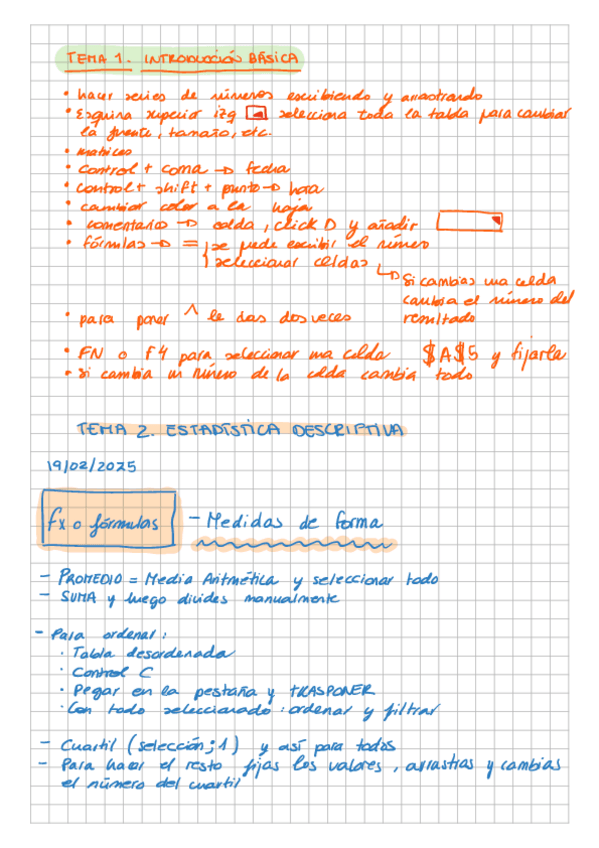 TEMA 1. INTRODUCCIÓN BÁSICA
• hacer series de números escribiendo y arrastrando
• Esquina superior izq selecciona toda la tabla para cambiar
la fuente, tamaño, etc.
• matrices
• control + coma → fecha
• control + shift + punto → hora
• cambiar color a la hoja
• comentario → celda, click D y añadir
• fórmulas → = se puede escribir el número
seleccionar celdas
↳ Si cambias una celda
cambia el número del
resultado
• para poner ^ le das dos veces
• FN o F4 para seleccionar una celda $A$5 y fijarla
• Si cambia un número de la celda cambia todo
TEMA 2. ESTADÍSTICA DESCRIPTIVA
19/02/2025
fx o fórmulas - Medidas de forma
- PROMEDIO = Media Aritmética y seleccionar todo
- SUMA y luego divides manualmente
- Para ordenar:
· Tabla desordenada
· Control C
· Pegar en la pestaña y TRASPONER
· Con todo seleccionado: ordenar y filtrar
- Cuartil (selección; 1) y así para todos
- Para hacer el resto fijas los valores, arrastras y cambias
el número del cuartil